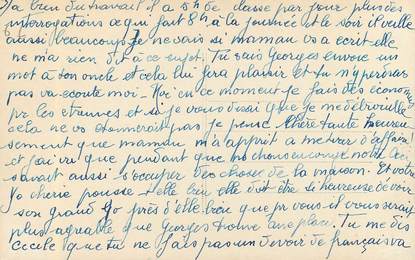 a bien du travail il a 5h de classe par jour plus des
interrogations ce qui fait 8h à la journée et le soir il veille
aussi beaucoup je ne sais si maman vs a écrit elle
ne m'a rien dit à ce sujet. Tu sais Georges envoie un
mot à son oncle et cela lui fera plaisir et tu n'y
pas va écoute moi. Ici en ce moment je fais des économies
pr les étrennes et si je vous disais que je me débrouille
cela ne vs étonnerait pas je pense chère tante heureu
sement que maman m'a apprit a me tirer d'affaire
et j'ai vu que pendant que
savait aussi s'occuper des choses de la maison. Et votre
Jo chérie pousse t elle bien elle doit être si heureuse de voir
son grand Jo près d'elle bien que pr vous il vous serait
plus agréable que Georges trouve une place. Tu me dis
Cécile que tu ne fais pas un devoir de français va